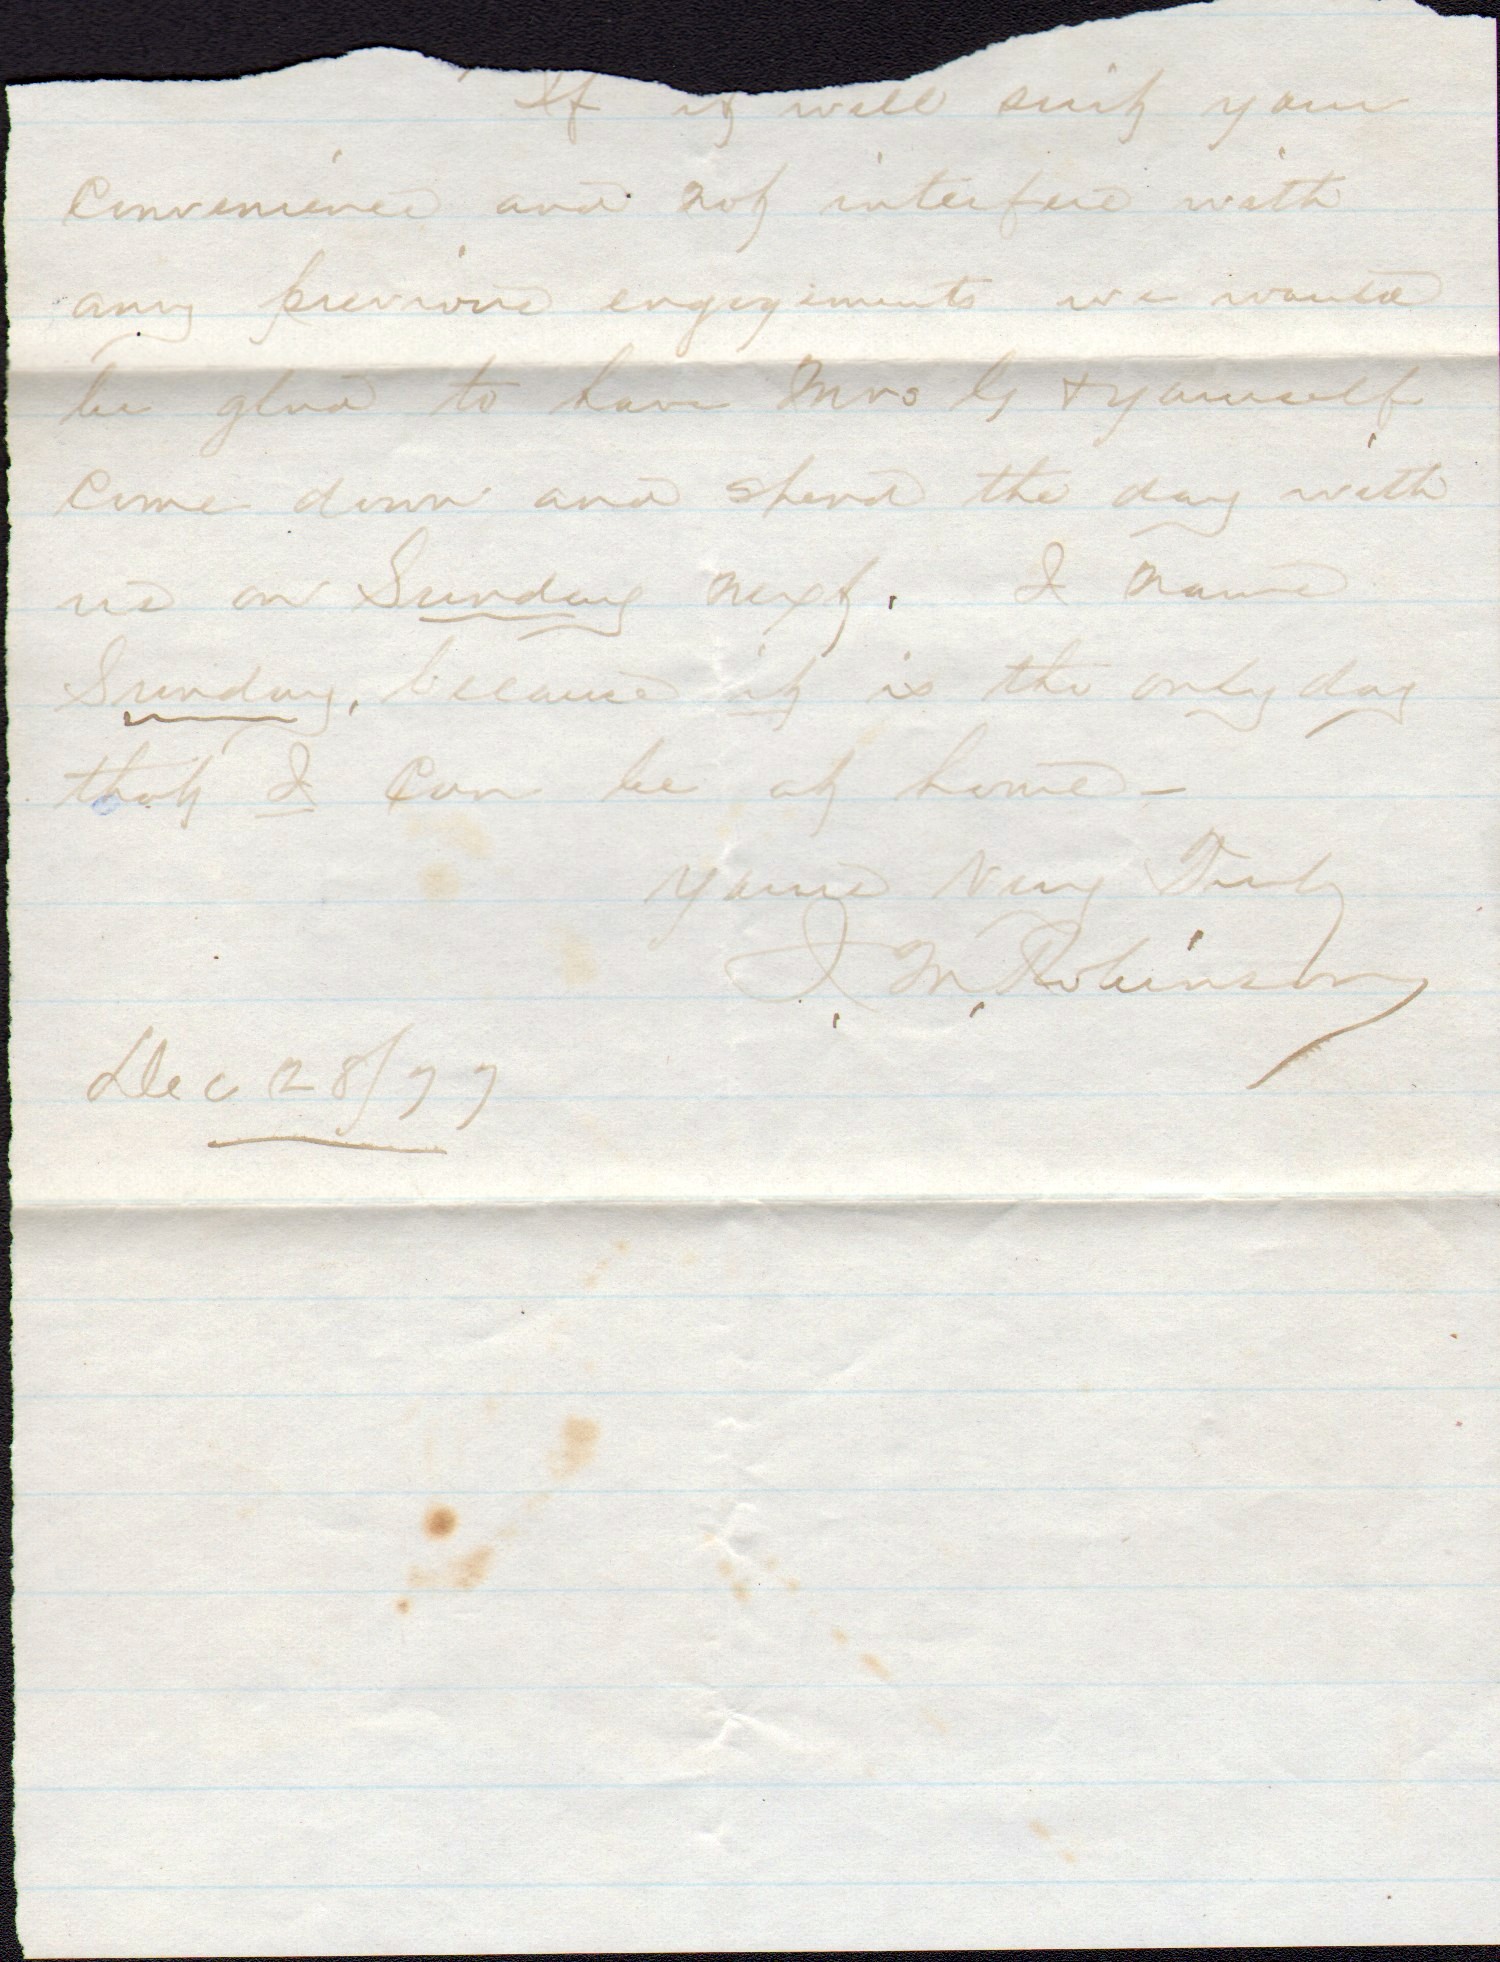 If it will suit your
convenience and not interfere with
any previous engagements we would
be glad to have Mrs G + yourself
come down and spend the day with
us on Sunday next. I name
Sunday, because it is the only day
that I can be at home -
Yours Very Truly
J. M. Robinson
Dec 28/77